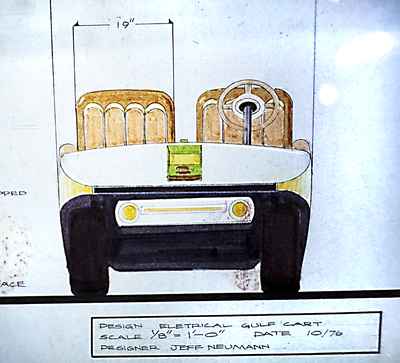 19"
PPED
ACE
DESIGN ELETRICAL GULF CART
SCALE 1/8" = 1'-0" DATE 10/76
DESIGNER JEFF NEUMANN